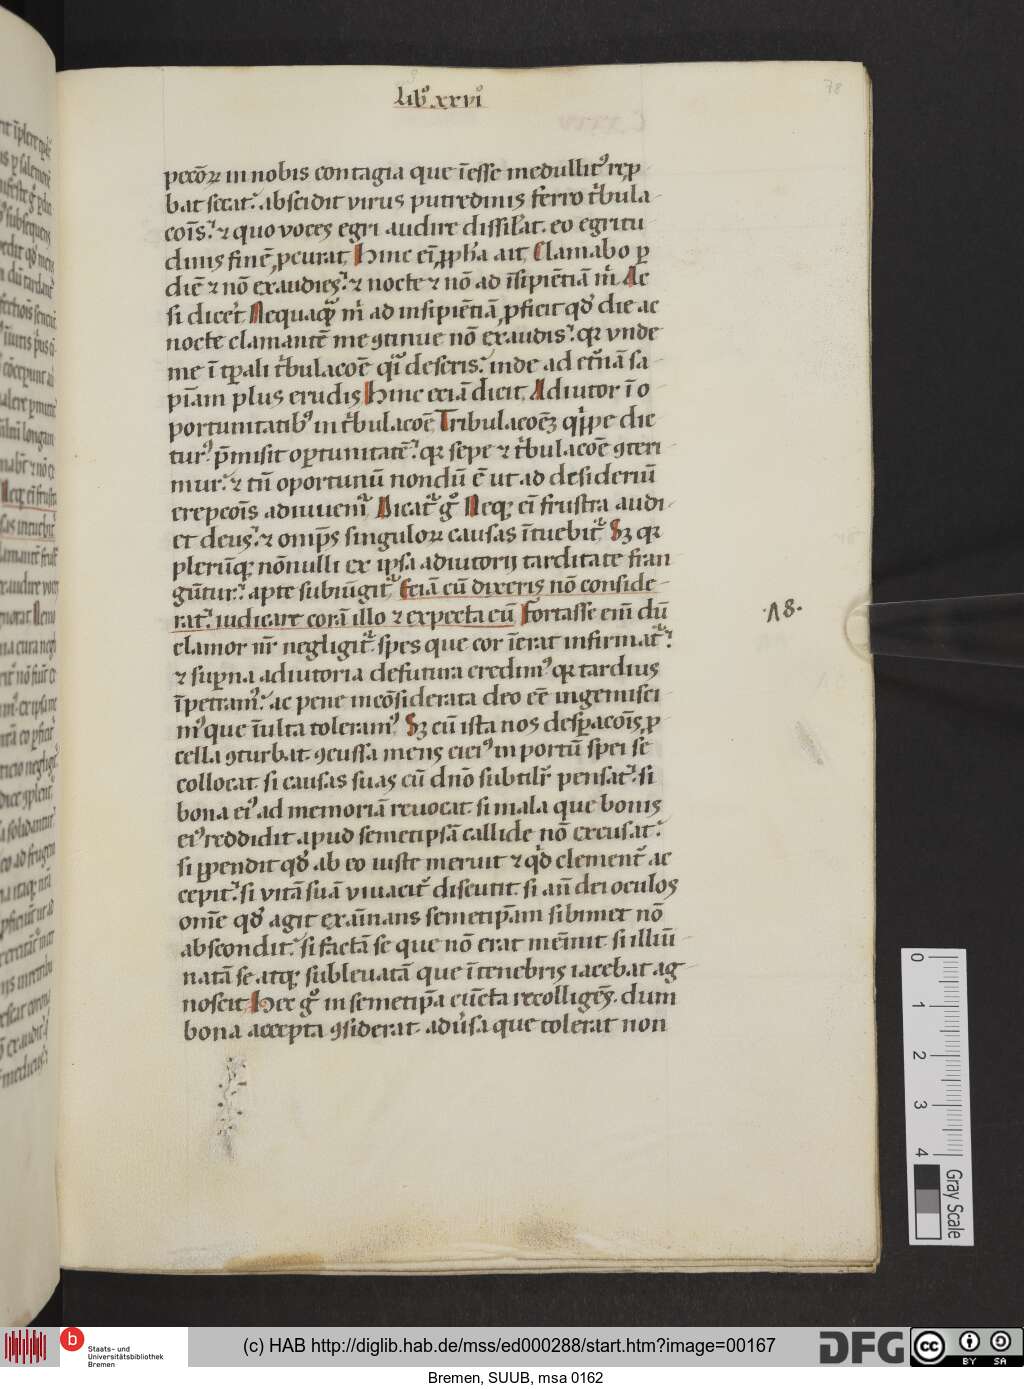 Lib᷒ xxvi
78
pccōꝝ in nobis contagia que īesse medullit᷒ rep̄
bat secat᷑. abscidit virus putredinis ferro t͛bula
cōis᷑. ⁊ quo voces egri audire dissil͛at. eo egritu
dinis finē ꝓcurat Hinc eī ꝓph̄a ait Clamabo ꝑ
diē ⁊ nō exaudies᷑. ⁊ nocte ⁊ nō ad īsipiētiā m̄ Ac
si dicet͛ Nequaqͣ m̄ ad insipiētiā ꝓficit qd̕ die ac
nocte clamantē me ꝯtinue nō exaudis᷑. qꝛ vnde
me ī tꝑali t͛bulacoē qͣi deseris᷑. inde ad et͛nā sa
pīam plus erudis Hinc eciā dicit Adiutor ī o
portunitatib᷒ in t͛bulacoē Tribulacoēꝫ qͥppe dic
tur᷒ p̄misit oꝑtunitatē᷑. qꝛ sepe ⁊ t͛bulacoē ꝯteri
mur᷑. ⁊ tn̄ oportunū nondū ē ut ad desideriū
erepcoīs adiuuemͥ Dicat᷑ g͛ Neqꝫ eī frustra audi
et deus᷑. ⁊ omīps singuloꝝ causas ītuebit᷑ Sꝫ qꝛ
plerūqꝫ nōnulli ex ipsa adiutorij tarditate fran
gūtur᷑. apte subiūgit᷑ Eciā cū dixeris nō conside
rat᷑. iudicare corā illo ⁊ expecta eū Fortasse enī dū
clamor nr̄ negligit᷑. spes que cor īerat infirmat᷑.
⁊ suꝑna adiutoria defutura credim᷒ qꝛ tardius
īpetram᷒. ac pene incōsiderata deo eē ingemisci
m᷒ que īulta toleram᷒ Sꝫ cū ista nos desꝑacoīs ꝓ
cella ꝯturbat. ꝯcussa mens cici᷒ in portū spei se
collocat. si causas suas cū dn̄o subtilr̄ pensat᷑. si
bona ei᷒ ad memoriā reuocat. si mala que bonis
ei᷒ reddidit apud semetipsā callide nō excusat᷑.
si ꝑpendit qd̕ ab eo iuste meruit ⁊ qd̕ clement᷑ ac
cepit᷑. si vitā suā viuacit᷑ discutit. si an̄ dei oculos
om̄e qd̕ agit exaīnans semetipāam sibimet nō
abscondit᷑. si factā se que nō erat mēinit. si illuī
natā se atqꝫ subleuatā que ītenebris iacebat ag
noscit Hec g͛ in semetip̄a cūcta recolligēs. dum
bona accepta ꝯsiderat. adu͛sa que tolerat non
·18·
0 1 2 3 4
Gray Scale
Staats- und
Universitätsbibliothek
Bremen
(c) HAB http://diglib.hab.de/mss/ed000288/start.htm?image=00167
DFG
cc BY SA
Bremen, SUUB, msa 0162